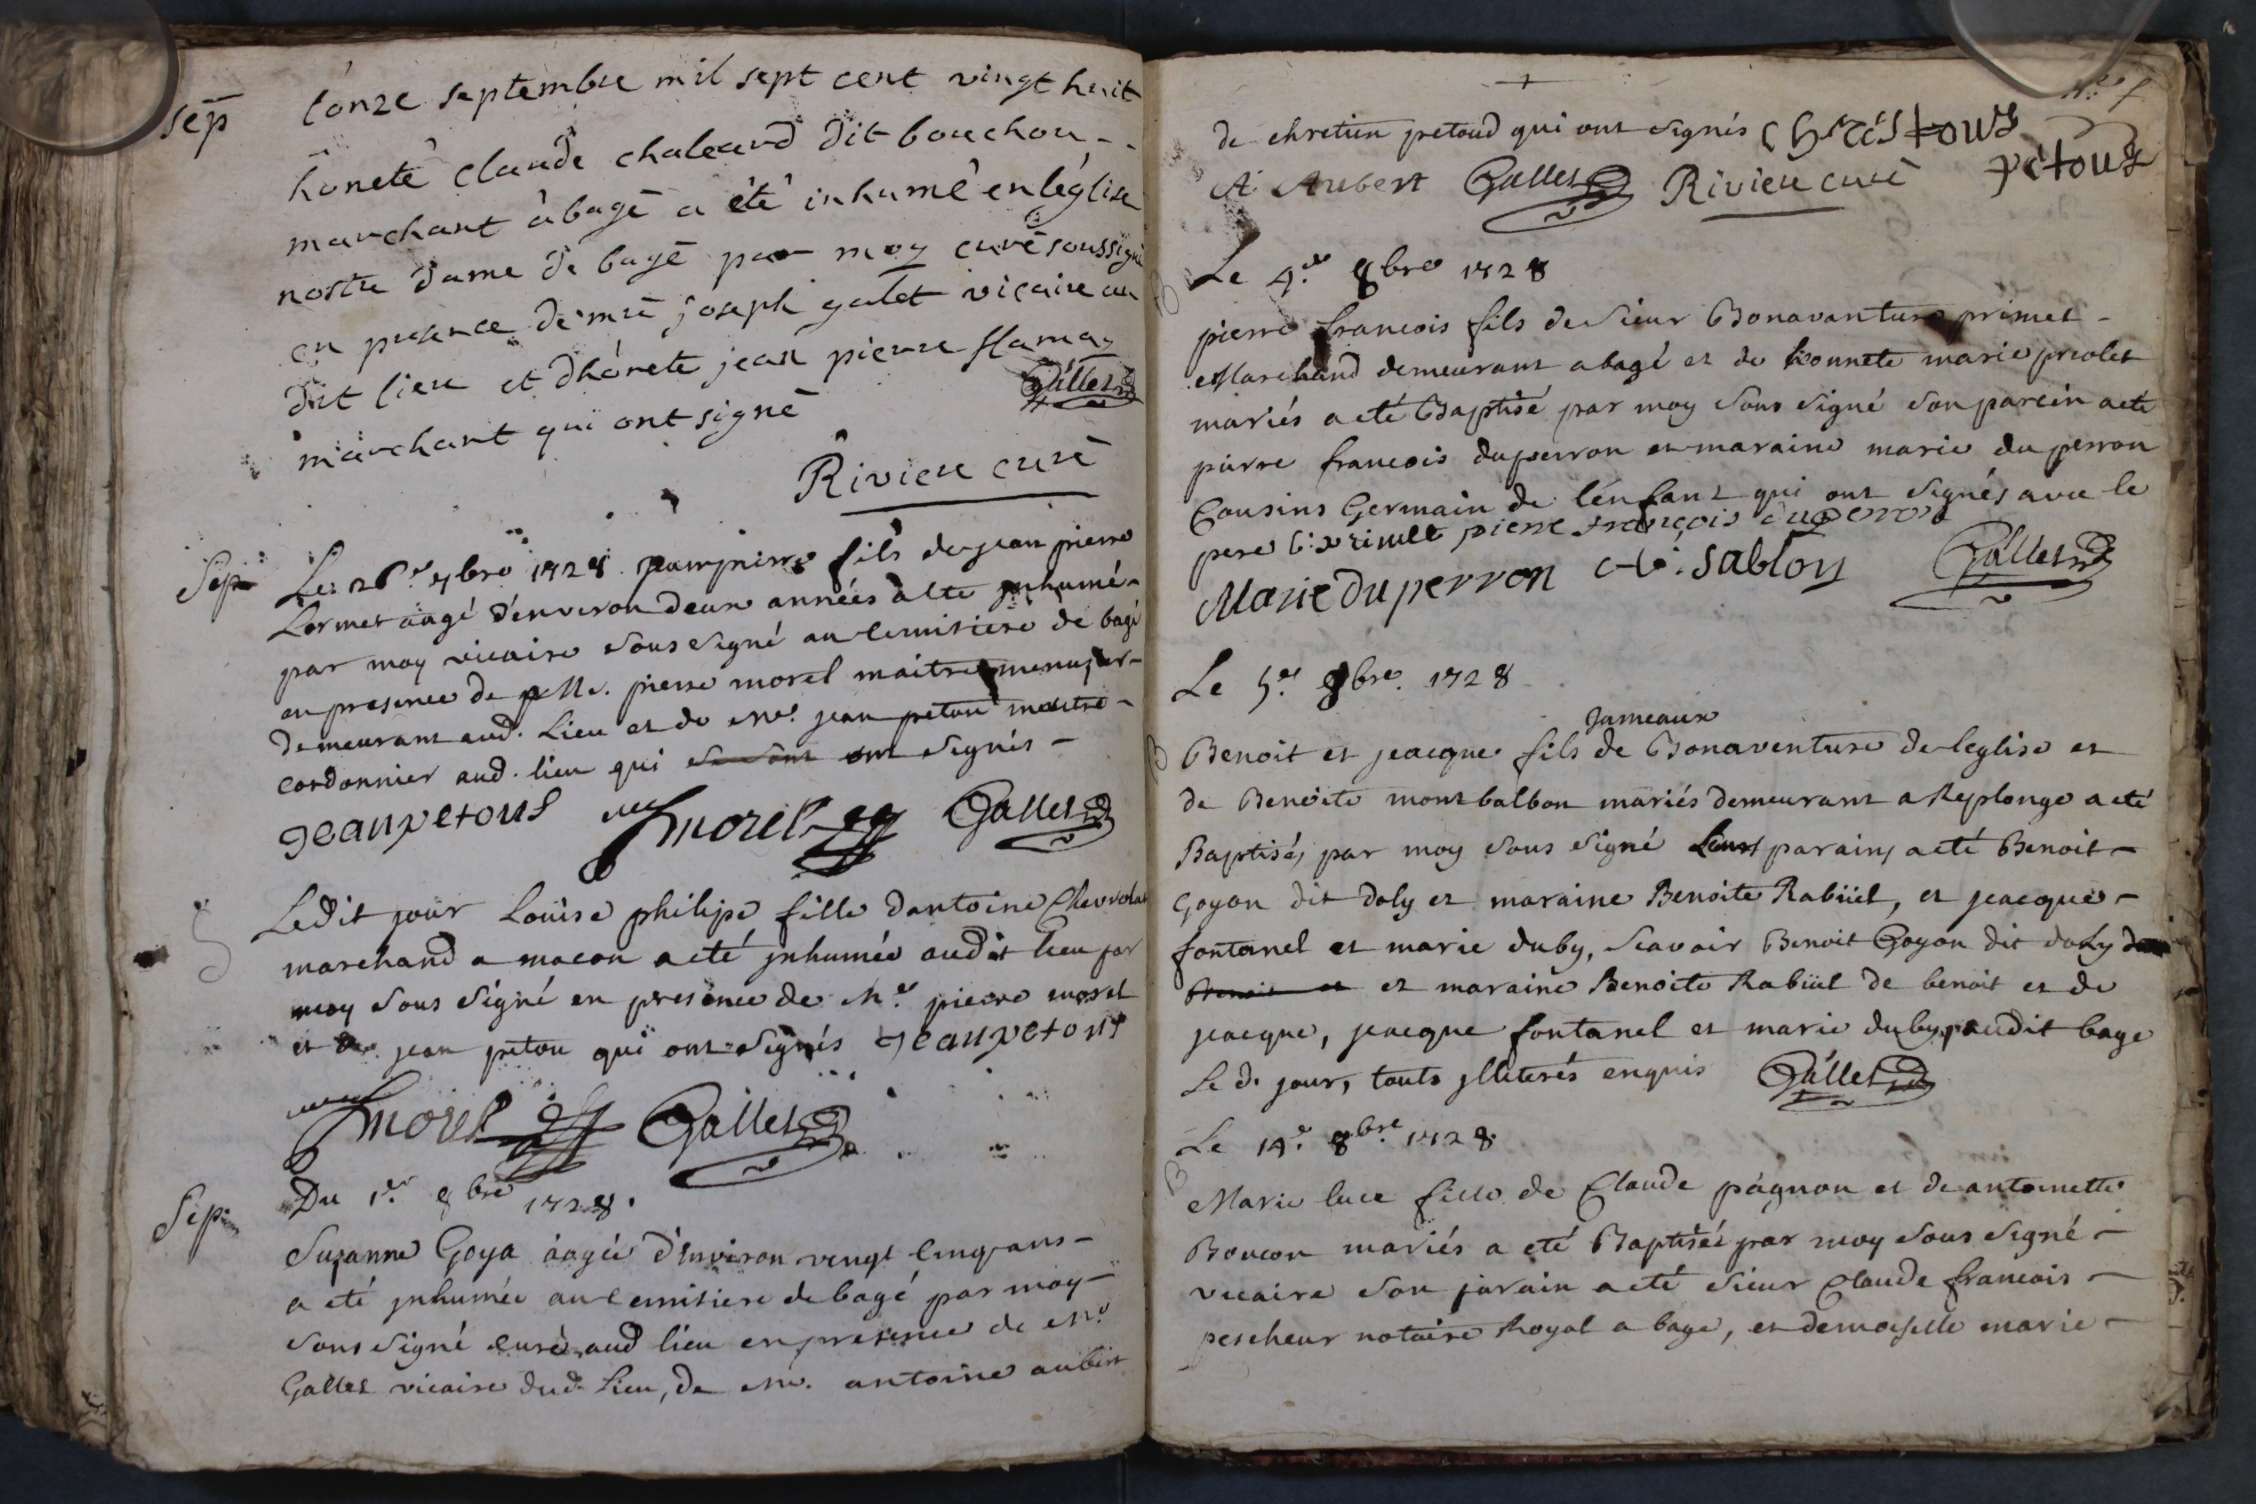 Sep
L'onze septembre mil sept cent vingt huit
honete claude chaleard dit bouchou
marchant a bagé a été inhumé en l'église
nostre dame de bagé par moy curé soussigné
en presence de mre joseph galet vicaire au
dit lieu et d'honete jean pierre flama
marchant qui ont signé Gallet
Rivieu curé
Sep.
Le 26e 7bre 1728 pierre fils de jean pierre
Lormet aagé d'environ deux années a été jnhumé
par moy vicaire sous signé au Cemitiere de bagé
en presence de Me. pierre morel maitre menusier
demeurant aud. Lieu et de Me. jean petou maitre
cordonnier aud. lieu qui se sont ont signés
jean petous morel Gallet
Ledit jour Loüise philipe fille d'antoine Chevrolat
marchand a macon a eté jnhumée audit lieu par
moy sous signé en presence de Me. pierre morel
et jean petou qui ont signés jean petous
morel Gallet
Sep.
Du 1er 8bre 1728.
Suzanne Goya aagée d'Environ vingt Cinq ans
a eté jnhumée au Cemitiere de bagé par moy
sous signé curé aud lieu en presence de Me
Gallet vicaire dud. Lieu, de Me. antoine aubert
de chretien petoud qui ont signés chrestous
petous
A Aubert Gallet Rivieu curé
B
Le 4e 8bre 1728
pierre francois fils de Sieur Bonavanture primet
Marchand demeurant a bagé et de honnete marie preolet
mariés a eté Baptisé par moy sous signé son parein a eté
pierre francois duperron et maraine marie du perron
Cousins Germain de l'enfant qui ont signés avec le
pere pierre françois duperron
Marie du perron Sablon Gallet
Le 5e 8bre. 1728
B
Jameaux
Benoit et jeacque fils de Bonaventure de leglise et
de Benoite montbalbon mariés demeurant a Replonge a eté
Baptisés par moy sous signé Leurs parains a eté Benoit
Goyon dit doly et maraine Benoite Rabüel, et jeacque
fontanel et marie duby, scavoir Benoit Goyon dit doly
Benoit et et maraine Benoite Rabüel de benoit et de
jeacque, jeacque fontanel et marie duby, audit bage
Le d. jour, touts jlliterés enquis Gallet
Le 14e. 8bre. 1728
B
Marie luce fille de Claude pagnon et de antoinette
Boucon mariés a eté Baptisée par moy sous signé
vicaire son parain a eté sieur Claude francois
pescheur notaire Royal a bage, et demoiselle marie